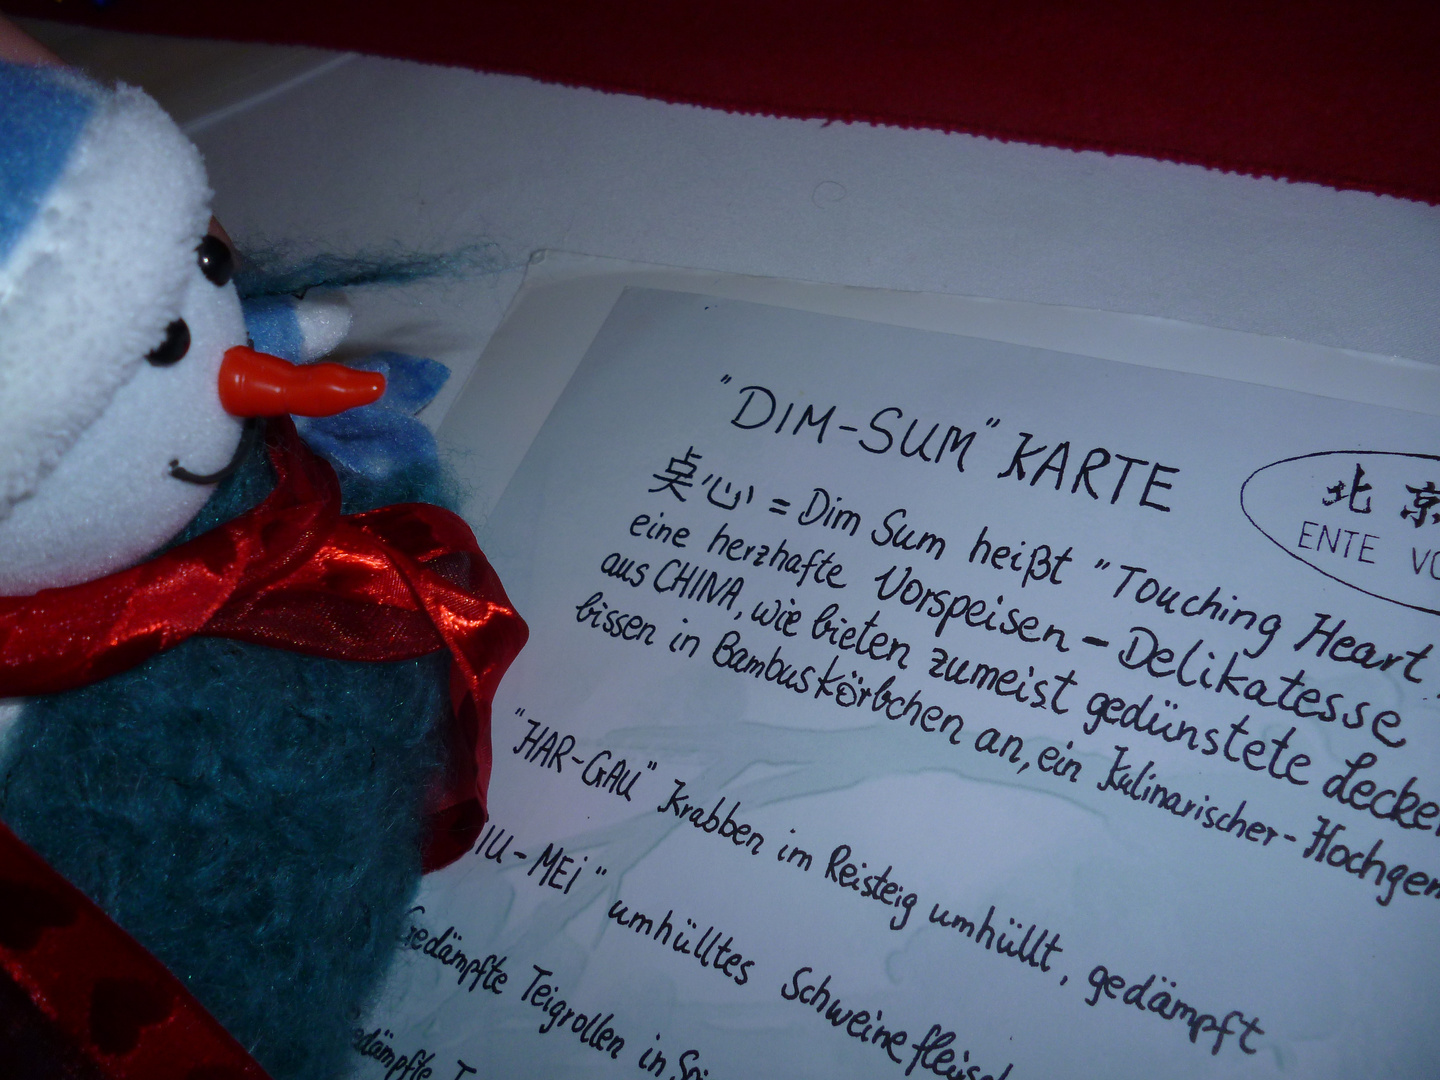 "DIM-SUM" KARTE
北京
ENTE
桌心 = Dim Sum heißt "Touching Heart"
eine herzhafte Vorspeisen - Delikatesse
aus CHINA, wie bieten zumeist gedünstete Lecker
bissen in Bambuskörbchen an, ein Kulinarischer-Hochgen
"HAR-GAU" Krabben im Reisteig umhüllt, gedämpft
IU-MEi" umhülltes Schweinefleisch
Gedämpfte Teigrollen in
edämpfte